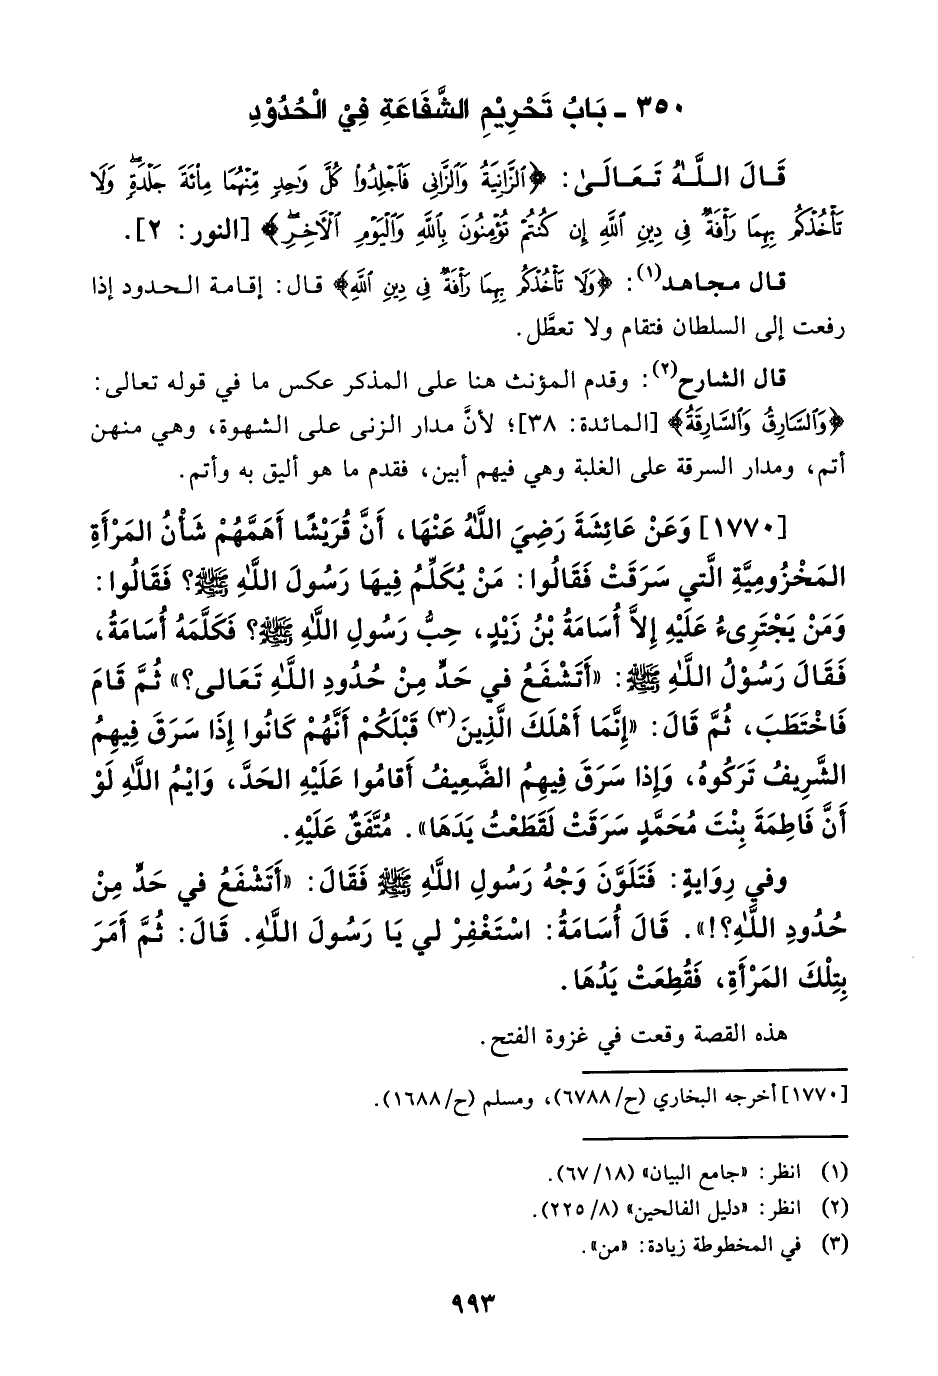 ٣٥٠ ـ بَابُ تَحْرِيْمِ الشَّفَاعَةِ فِيْ الْحُدُوْدِ
قَالَ اللَّهُ تَعَالَىٰ: ﴿ٱلزَّانِيَةُ وَٱلزَّانِي فَٱجْلِدُوا۟ كُلَّ وَٰحِدٍ مِّنْهُمَا مِا۟ئَةَ جَلْدَةٍ ۖ وَلَا
تَأْخُذْكُم بِهِمَا رَأْفَةٌ فِي دِينِ ٱللَّهِ إِن كُنتُمْ تُؤْمِنُونَ بِٱللَّهِ وَٱلْيَوْمِ ٱلْآخِرِ ۖ﴾ [النور: ٢].
قال مجاهد(١): ﴿وَلَا تَأْخُذْكُم بِهِمَا رَأْفَةٌ فِي دِينِ ٱللَّهِ﴾ قال: إقامة الحدود إذا
رفعت إلى السلطان فتقام ولا تعطَّل.
قال الشارح(٢): وقدم المؤنث هنا على المذكر عكس ما في قوله تعالى:
﴿وَٱلسَّارِقُ وَٱلسَّارِقَةُ﴾ [المائدة: ٣٨]؛ لأنَّ مدار الزنى على الشهوة، وهي منهن
أتم، ومدار السرقة على الغلبة وهي فيهم أبين، فقدم ما هو أليق به وأتم.
[١٧٧٠] وَعَنْ عَائِشَةَ رَضِيَ اللَّهُ عَنْهَا، أَنَّ قُرَيْشًا أَهَمَّهُمْ شَأْنُ المَرْأَةِ
المَخْزُومِيَّةِ الَّتي سَرَقَتْ فَقَالُوا: مَنْ يُكَلِّمُ فِيهَا رَسُولَ اللَّهِ ﷺ؟ فَقَالُوا:
وَمَنْ يَجْتَرِىءُ عَلَيْهِ إِلاَّ أُسَامَةُ بْنُ زَيْدٍ، حِبُّ رَسُولِ اللَّهِ ﷺ؟ فَكَلَّمَهُ أُسَامَةُ،
فَقَالَ رَسُوْلُ اللَّهِ ﷺ: «أَتَشْفَعُ في حَدٍّ مِنْ حُدُودِ اللَّهِ تَعَالى؟» ثُمَّ قَامَ
فَاخْتَطَبَ، ثُمَّ قَالَ: «إِنَّمَا أَهْلَكَ الَّذِينَ(٣) قَبْلَكُمْ أَنَّهُمْ كَانُوا إِذَا سَرَقَ فِيهِمُ
الشَّرِيفُ تَرَكُوهُ، وَإِذا سَرَقَ فِيهِمُ الضَّعِيفُ أَقامُوا عَلَيْهِ الحَدَّ، وَايْمُ اللَّهِ لَوْ
أَنَّ فَاطِمَةَ بِنْتَ مُحَمَّدٍ سَرَقَتْ لَقَطَعْتُ يَدَهَا». مُتَّفَقٌ عَلَيْهِ.
وفي رِوَايَةٍ: فَتَلَوَّنَ وَجْهُ رَسُولِ اللَّهِ ﷺ فَقَالَ: «أَتَشْفَعُ في حَدٍّ مِنْ
حُدُودِ اللَّهِ؟!». قَالَ أُسَامَةُ: اسْتَغْفِرْ لي يَا رَسُولَ اللَّهِ. قَالَ: ثُمَّ أَمَرَ
بِتِلْكَ المَرْأَةِ، فَقُطِعَتْ يَدُهَا.
هذه القصة وقعت في غزوة الفتح.
[١٧٧٠] أخرجه البخاري (ح/٦٧٨٨)، ومسلم (ح/١٦٨٨).
(١) انظر: «جامع البيان» (٦٧/١٨).
(٢) انظر: «دليل الفالحين» (٢٢٥/٨).
(٣) في المخطوطة زيادة: «من».
٩٩٣